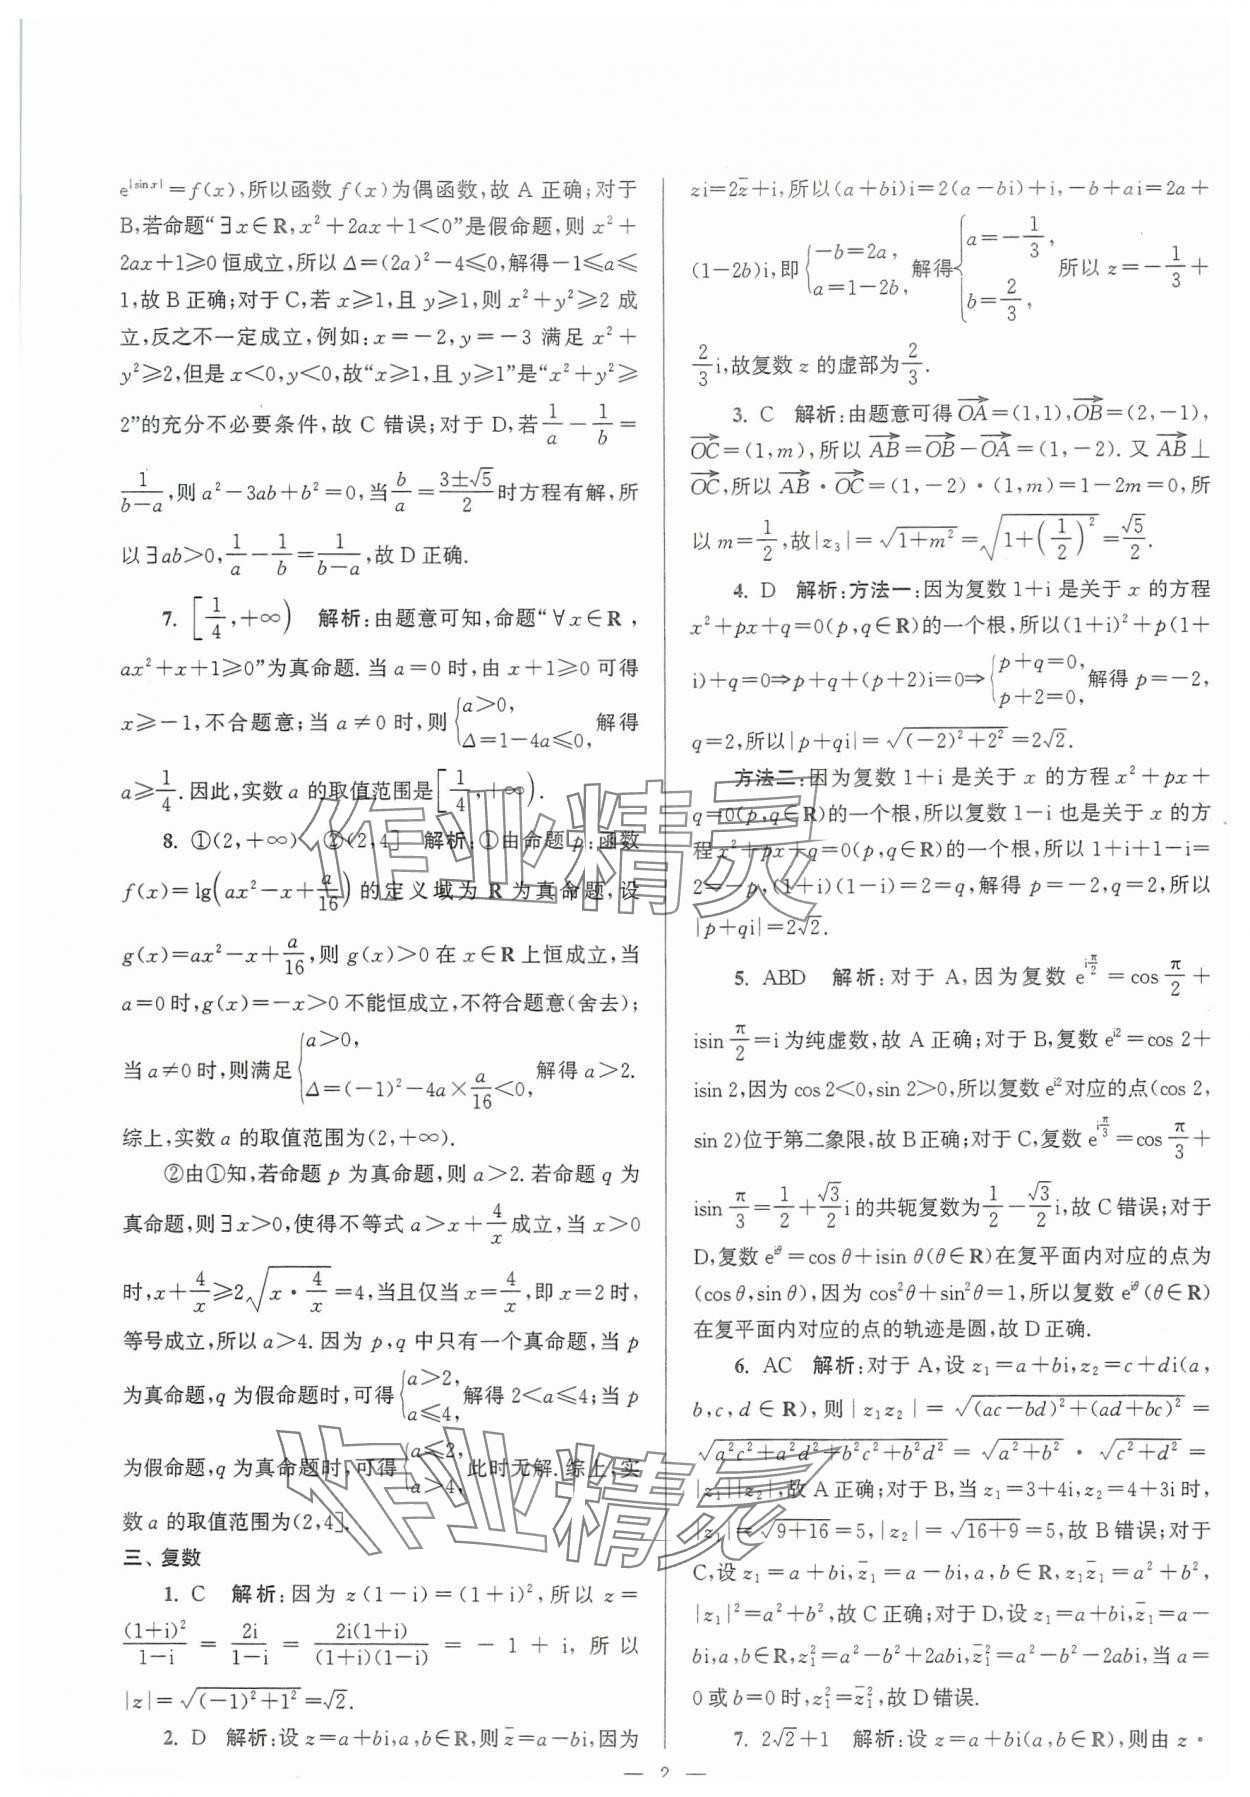 e^{|sin x|}=f(x),所以函数 f(x)为偶函数,故 A 正确;对于
B,若命题“∃x∈R,x²+2ax+1<0”是假命题,则 x²+
2ax+1≥0恒成立,所以 Δ=(2a)²-4≤0,解得-1≤a≤
1,故 B 正确;对于 C,若 x≥1,且 y≥1,则 x²+y²≥2 成
立,反之不一定成立,例如:x=-2,y=-3 满足 x²+
y²≥2,但是 x<0,y<0,故“x≥1,且 y≥1”是“x²+y²≥
2”的充分不必要条件,故 C 错误;对于 D,若\frac{1}{a}-\frac{1}{b}=
\frac{1}{b-a},则 a²-3ab+b²=0,当\frac{b}{a}=\frac{3±√5}{2}时方程有解,所
以∃ab>0,\frac{1}{a}-\frac{1}{b}=\frac{1}{b-a},故 D 正确.
7. [\frac{1}{4},+∞) 解析:由题意可知,命题“∀x∈R,
ax²+x+1≥0”为真命题. 当 a=0 时,由 x+1≥0 可得
x≥-1,不合题意;当 a≠0 时,则{a>0, Δ=1-4a≤0, 解得
a≥\frac{1}{4}. 因此,实数 a 的取值范围是[\frac{1}{4},+∞).
8. ①(2,+∞) ②(2,4] 解析:①由命题 p:函数
f(x)=lg(ax²-x+\frac{a}{16})的定义域为 R 为真命题,设
g(x)=ax²-x+\frac{a}{16},则 g(x)>0 在 x∈R 上恒成立,当
a=0 时,g(x)=-x>0 不能恒成立,不符合题意(舍去);
当 a≠0 时,则满足{a>0, Δ=(-1)²-4a×\frac{a}{16}<0, 解得 a>2.
综上,实数 a 的取值范围为(2,+∞).
②由①知,若命题 p 为真命题,则 a>2. 若命题 q 为
真命题,则∃x>0,使得不等式 a>x+\frac{4}{x}成立,当 x>0
时,x+\frac{4}{x}≥2\sqrt{x·\frac{4}{x}}=4,当且仅当 x=\frac{4}{x},即 x=2 时,
等号成立,所以 a>4. 因为 p,q 中只有一个真命题,当 p
为真命题,q 为假命题时,可得{a>2, a≤4, 解得 2<a≤4;当 p
为假命题,q 为真命题时,可得{a≤2, a>4, 此时无解. 综上,实
数 a 的取值范围为(2,4].
三、复数
1. C 解析:因为 z(1-i)=(1+i)²,所以 z=
\frac{(1+i)²}{1-i}=\frac{2i}{1-i}=\frac{2i(1+i)}{(1+i)(1-i)}=-1+i,所以
|z|=\sqrt{(-1)²+1²}=√2.
2. D 解析:设 z=a+bi,a,b∈R,则 z̄=a-bi,因为
zi=2z̄+i,所以(a+bi)i=2(a-bi)+i,-b+ai=2a+
(1-2b)i,即{-b=2a, a=1-2b, 解得{a=-\frac{1}{3}, b=\frac{2}{3}, 所以 z=-\frac{1}{3}+
\frac{2}{3}i,故复数 z 的虚部为\frac{2}{3}.
3. C 解析:由题意可得\overrightarrow{OA}=(1,1),\overrightarrow{OB}=(2,-1),
\overrightarrow{OC}=(1,m),所以\overrightarrow{AB}=\overrightarrow{OB}-\overrightarrow{OA}=(1,-2). 又\overrightarrow{AB}⊥
\overrightarrow{OC},所以\overrightarrow{AB}·\overrightarrow{OC}=(1,-2)·(1,m)=1-2m=0,所
以 m=\frac{1}{2},故|z₃|=\sqrt{1+m²}=\sqrt{1+(\frac{1}{2})²}=\frac{√5}{2}.
4. D 解析:方法一:因为复数 1+i 是关于 x 的方程
x²+px+q=0(p,q∈R)的一个根,所以(1+i)²+p(1+
i)+q=0⇒p+q+(p+2)i=0⇒{p+q=0, p+2=0, 解得 p=-2,
q=2,所以|p+qi|=\sqrt{(-2)²+2²}=2√2.
方法二:因为复数 1+i 是关于 x 的方程 x²+px+
q=0(p,q∈R)的一个根,所以复数 1-i 也是关于 x 的方
程 x²+px+q=0(p,q∈R)的一个根,所以 1+i+1-i=
2=-p,(1+i)(1-i)=2=q,解得 p=-2,q=2,所以
|p+qi|=2√2.
5. ABD 解析:对于 A,因为复数 e^{i\frac{π}{2}}=cos\frac{π}{2}+
isin\frac{π}{2}=i为纯虚数,故 A 正确;对于 B,复数 e^{i2}=cos 2+
isin 2,因为 cos 2<0,sin 2>0,所以复数 e^{i2}对应的点(cos 2,
sin 2)位于第二象限,故 B 正确;对于 C,复数 e^{i\frac{π}{3}}=cos\frac{π}{3}+
isin\frac{π}{3}=\frac{1}{2}+\frac{√3}{2}i的共轭复数为\frac{1}{2}-\frac{√3}{2}i,故 C 错误;对于
D,复数 e^{iθ}=cos θ+isin θ(θ∈R)在复平面内对应的点为
(cos θ,sin θ),因为 cos²θ+sin²θ=1,所以复数 e^{iθ}(θ∈R)
在复平面内对应的点的轨迹是圆,故 D 正确.
6. AC 解析:对于 A,设 z₁=a+bi,z₂=c+di(a,
b,c,d∈R),则|z₁z₂|=\sqrt{(ac-bd)²+(ad+bc)²}=
\sqrt{a²c²+a²d²+b²c²+b²d²}=\sqrt{a²+b²}·\sqrt{c²+d²}=
|z₁||z₂|,故 A 正确;对于 B,当 z₁=3+4i,z₂=4+3i 时,
|z₁|=\sqrt{9+16}=5,|z₂|=\sqrt{16+9}=5,故 B 错误;对于
C,设 z₁=a+bi,z̄₁=a-bi,a,b∈R,z₁z̄₁=a²+b²,
|z₁|²=a²+b²,故 C 正确;对于 D,设 z₁=a+bi,z̄₁=a-
bi,a,b∈R,z₁²=a²-b²+2abi,z̄₁²=a²-b²-2abi,当 a=
0 或 b=0 时,z₁²=z̄₁²,故 D 错误.
7. 2√2+1 解析:设 z=a+bi(a,b∈R),则由 z·
— 2 —
作业精灵
作业精灵